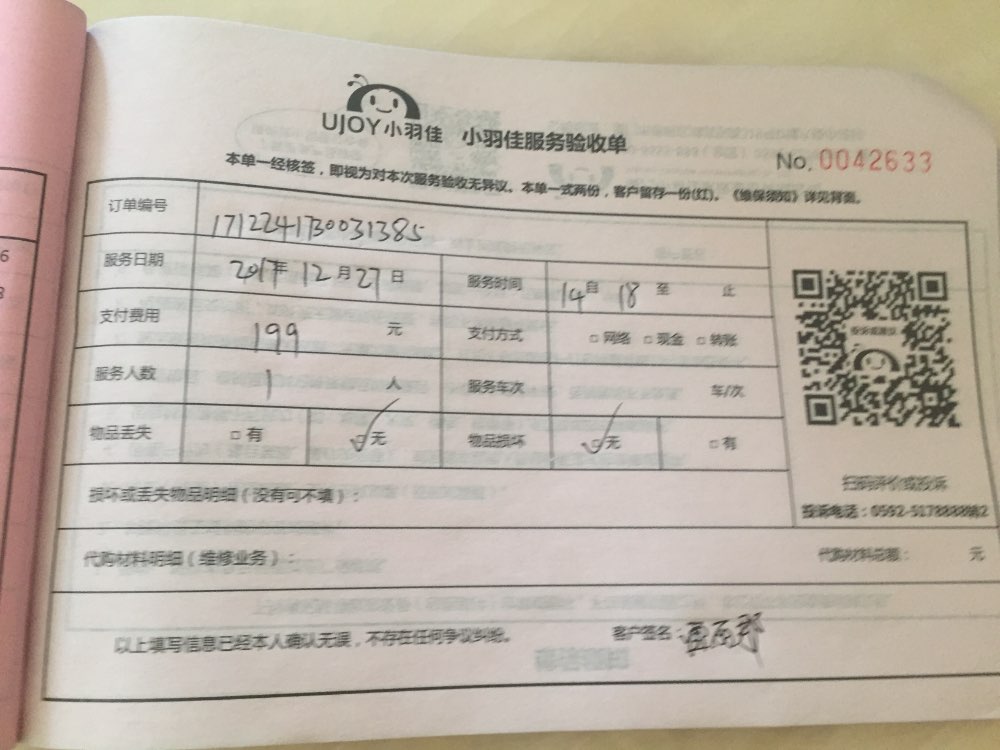 UJOY小羽佳 小羽佳服务验收单
No. 0042633
本单一经核签，即视为对本次服务验收无异议。本单一式两份，客户留存一份(红)。《维保须知》详见背面。
订单编号 1712241730031385
服务日期 2017年 12月27日 服务时间 14自 18至 止
支付费用 199 元 支付方式 □网络 □现金 □转账
服务人数 1 人 服务车次 车/次
物品丢失 □有 ☑无 物品损坏 ☑无 □有
扫码评价或投诉
损坏或丢失物品明细（没有可不填）：
投诉电话：0592-5178888转2
代购材料明细（维修业务）： 代购材料总额： 元
以上填写信息已经本人确认无误，不存在任何争议纠纷。 客户签名：
6